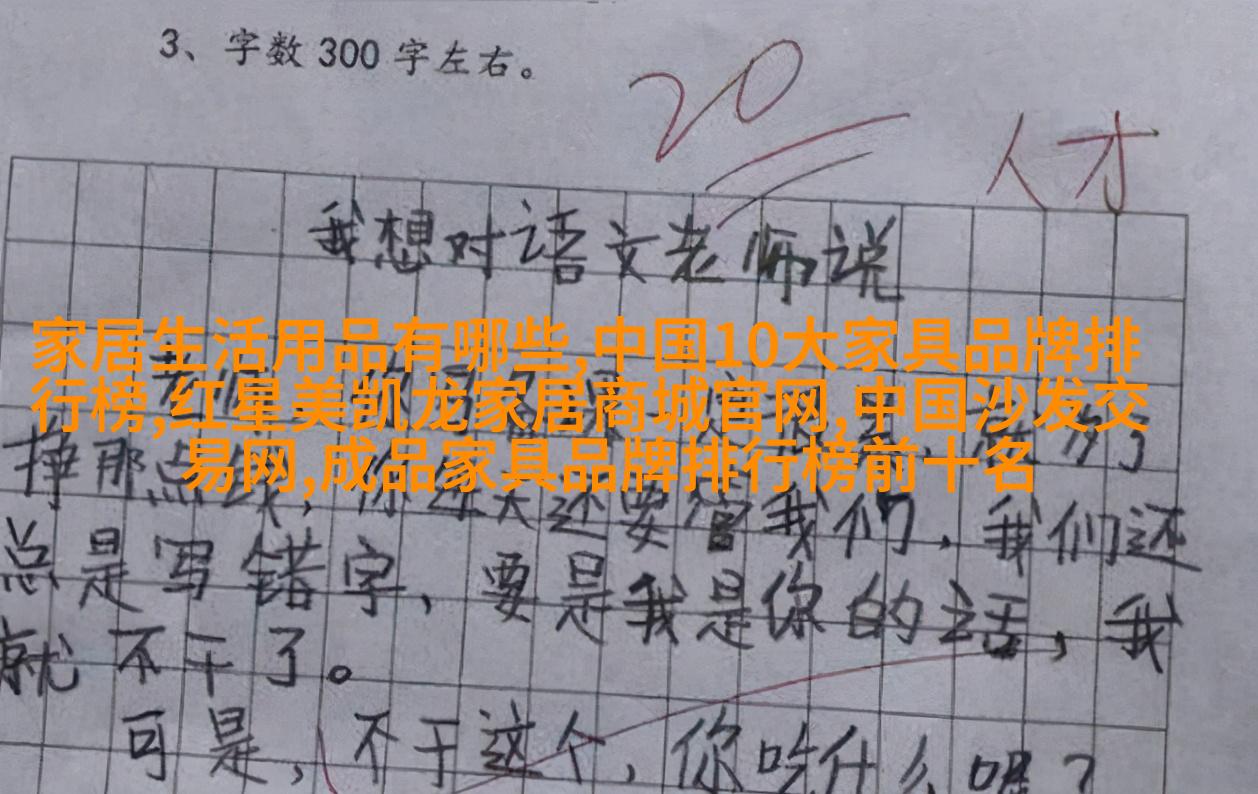 3、字数 300 字左右。
20
人才
我想对语文老师说
家居生活用品有哪些,中国10大家具品牌排
行榜,红星美凯龙家居商城官网,中国沙发交
易网,成品家具品牌排行榜前十名
挣那点
还要管我们，我们还
总是写错字，要是我是你的话，我
就不干了。
可是，不干这个，你吃什么呢？